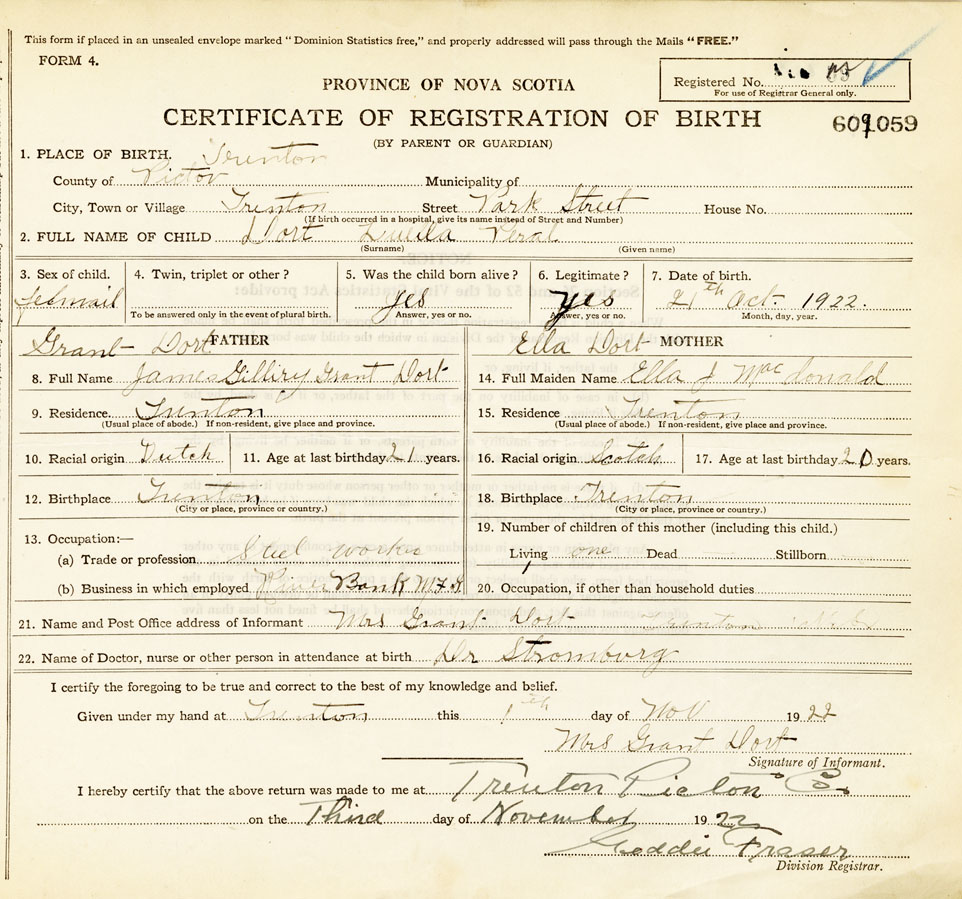 This form if placed in an unsealed envelope marked "Dominion Statistics free," and properly addressed will pass through the Mails "FREE."
FORM 4.
PROVINCE OF NOVA SCOTIA
Registered No.
For use of Registrar General only.
CERTIFICATE OF REGISTRATION OF BIRTH
609059
(BY PARENT OR GUARDIAN)
1. PLACE OF BIRTH. Trenton
County of Pictou Municipality of
City, Town or Village Trenton Street Park Street House No.
(If birth occurred in a hospital, give its name instead of Street and Number)
2. FULL NAME OF CHILD Dort Luella Peral
(Surname) (Given name)
3. Sex of child. 4. Twin, triplet or other? 5. Was the child born alive? 6. Legitimate? 7. Date of birth.
femail yes yes 21th Oct. 1922.
To be answered only in the event of plural birth. Answer, yes or no. Answer, yes or no. Month, day, year.
Grant Dort FATHER Ella Dort MOTHER
8. Full Name James Gilliry Grant Dort 14. Full Maiden Name Ella J Macdonald
9. Residence. Trenton 15. Residence Trenton
(Usual place of abode.) If non-resident, give place and province. (Usual place of abode.) If non-resident, give place and province.
10. Racial origin Dutch 11. Age at last birthday 21 years. 16. Racial origin Scotch 17. Age at last birthday 20 years.
12. Birthplace Trenton 18. Birthplace Trenton
(City or place, province or country.) (City or place, province or country.)
19. Number of children of this mother (including this child.)
13. Occupation:—
(a) Trade or profession Steel worker Living one Dead Stillborn
(b) Business in which employed Bank 20. Occupation, if other than household duties
21. Name and Post Office address of Informant Mrs Grant Dort Trenton
22. Name of Doctor, nurse or other person in attendance at birth Dr Stromburg
I certify the foregoing to be true and correct to the best of my knowledge and belief.
Given under my hand at Trenton this 1th day of Nov 1922
Mrs Grant Dort
Signature of Informant.
I hereby certify that the above return was made to me at Trenton Pictou Co.
on the Third day of November 1922
Geddie Fraser
Division Registrar.